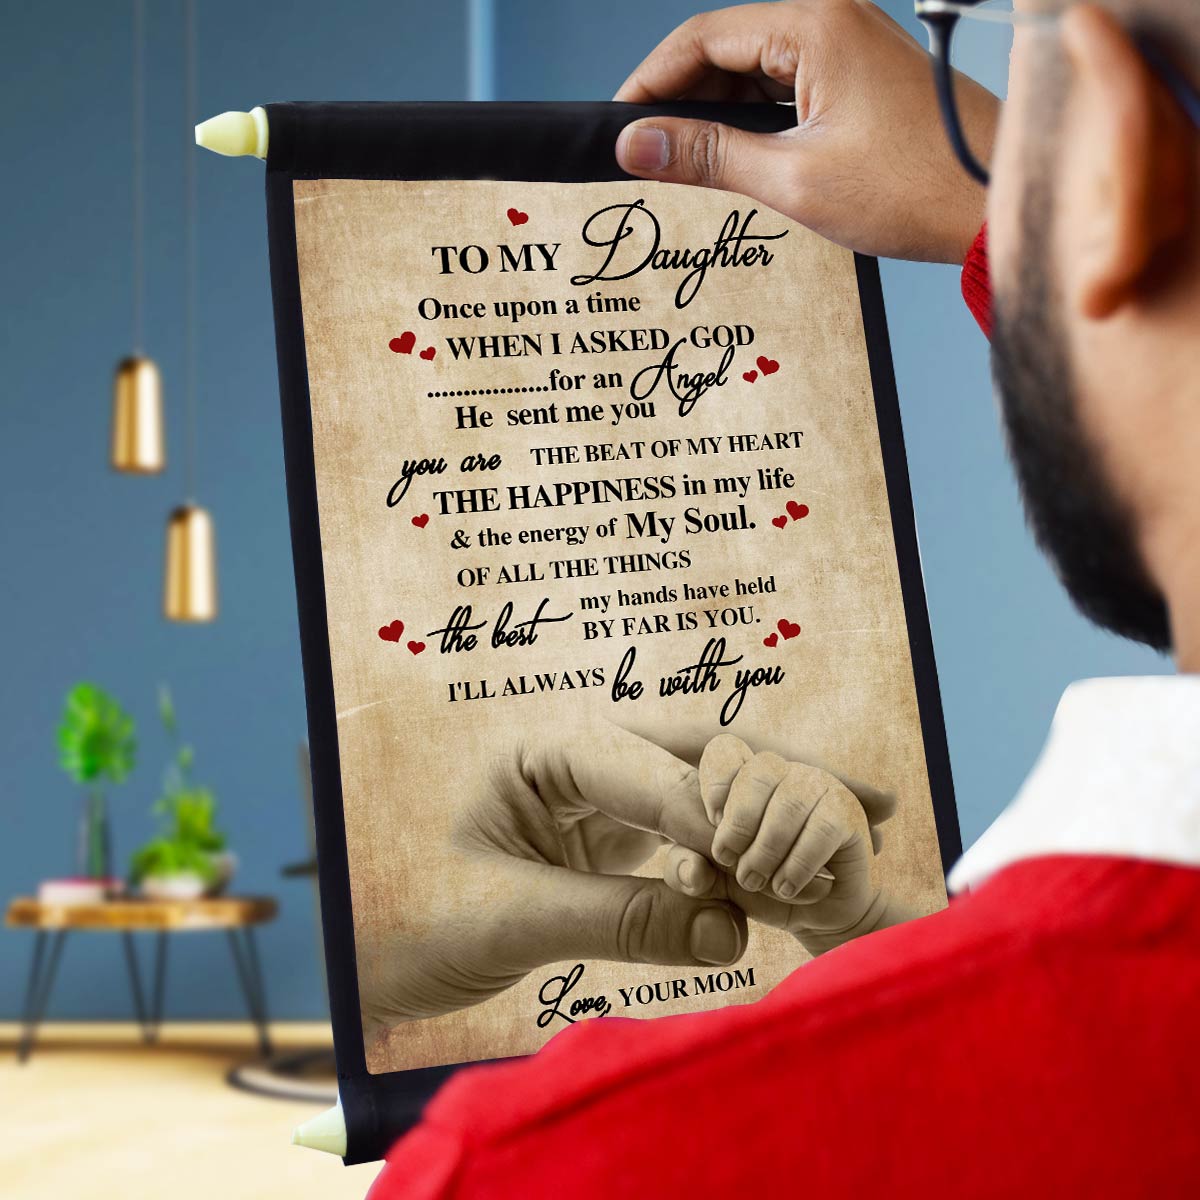 TO MY Daughter
Once upon a time
WHEN I ASKED GOD
.................for an Angel
He sent me you
you are THE BEAT OF MY HEART
THE HAPPINESS in my life
& the energy of My Soul.
OF ALL THE THINGS
the best my hands have held
BY FAR IS YOU.
I'LL ALWAYS be with you
Love, YOUR MOM